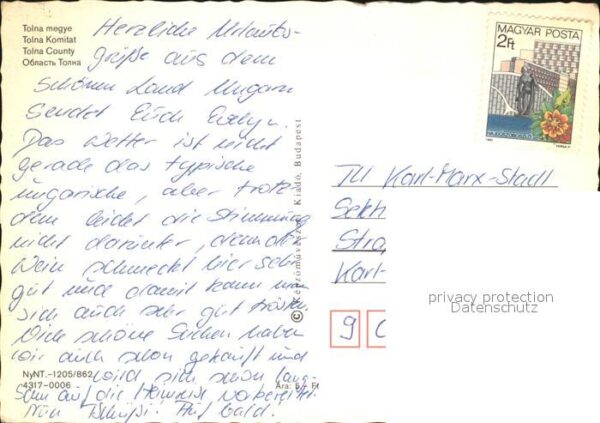 Tolna megye
Tolna Komitat
Tolna County
Область Толна
Herzliche Urlaubs-
grüße aus dem
schönen Land Ungarn
sendet Euch Evelyn.
Das Wetter ist nicht
gerade das typische
ungarische, aber trotz-
dem leidet die Stimmung
nicht darunter, denn der
Wein schmeckt hier sehr
gut und damit kann man
sich auch sehr gut trösten.
Viele schöne Sachen haben
wir auch schon gekauft und
wird sich schon lang-
sam auf die Heimreise vorbereitet.
Nun Tschüß! Auf bald.
NyNT.-1205/862
4317-0006
Ára: 5,- Ft
Kiadó, Budapest
MAGYAR POSTA
2Ft
TU Karl-Marx-Stadt
Sekt
Stra
Karl-
9
privacy protection
Datenschutz